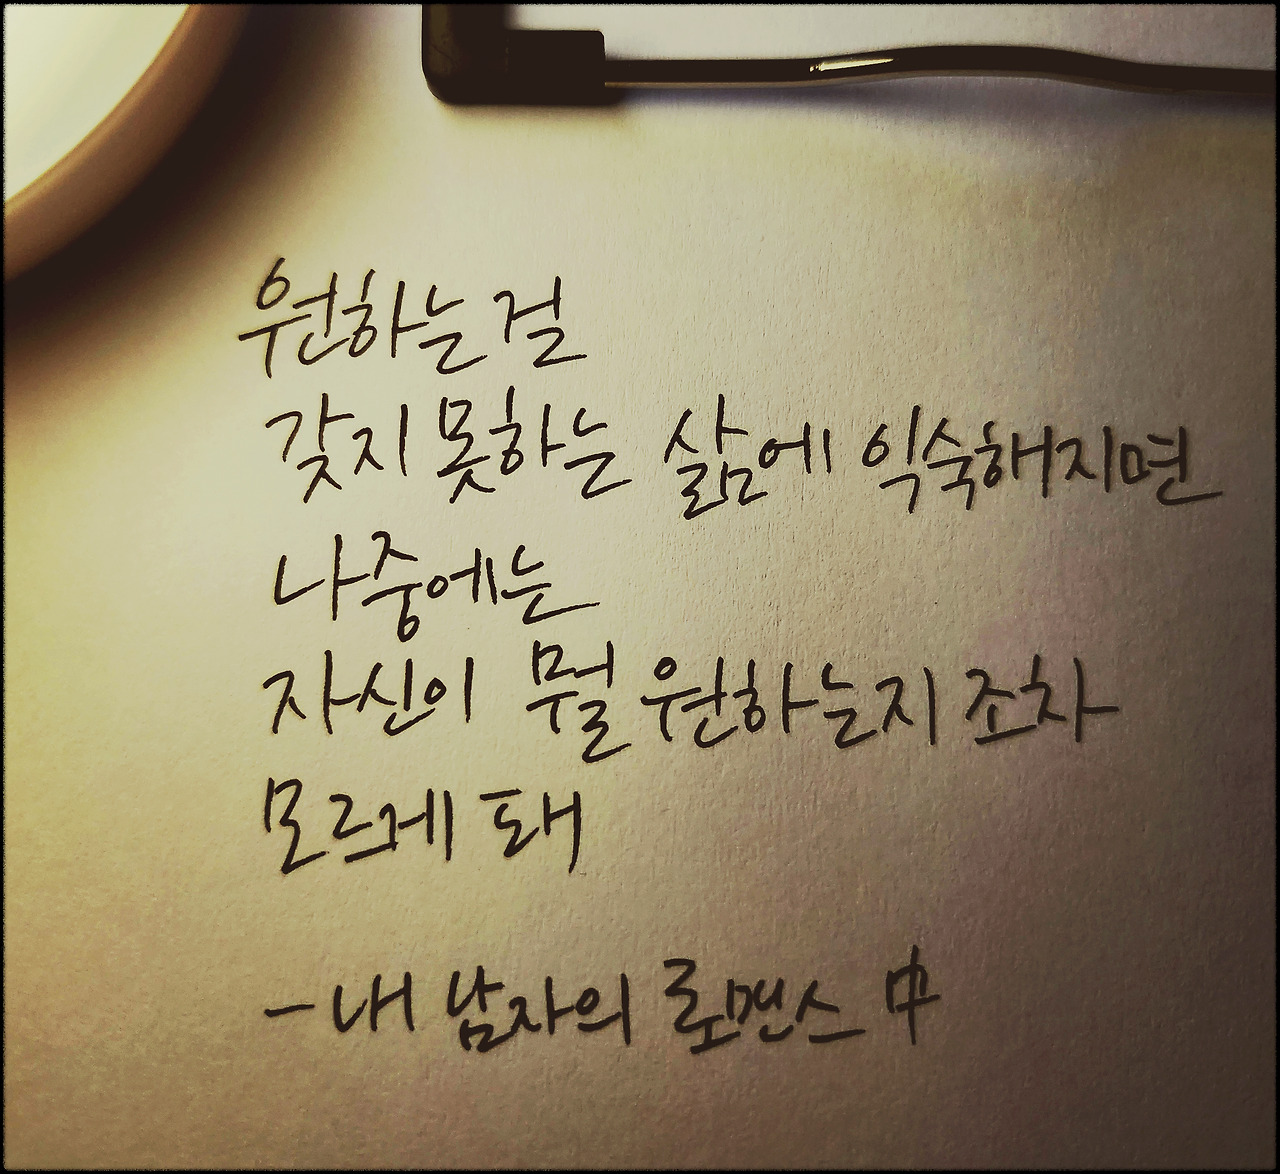 원하는 걸
갖지 못하는 삶에 익숙해지면
나중에는
자신이 뭘 원하는지 조차
모르게 돼
- 내 남자의 로맨스 中